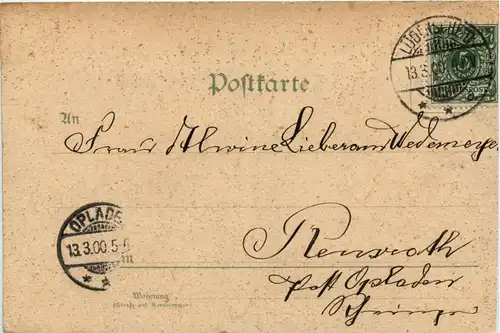 Postkarte
LÜDEN
13.3.00
5
POST
An
Frau Alwine Lieberam Wedemeyer
OPLADE
13.3.00.5-6
in
Renrath
Post Opladen
Wohnung
(Straße und Hausnummer)